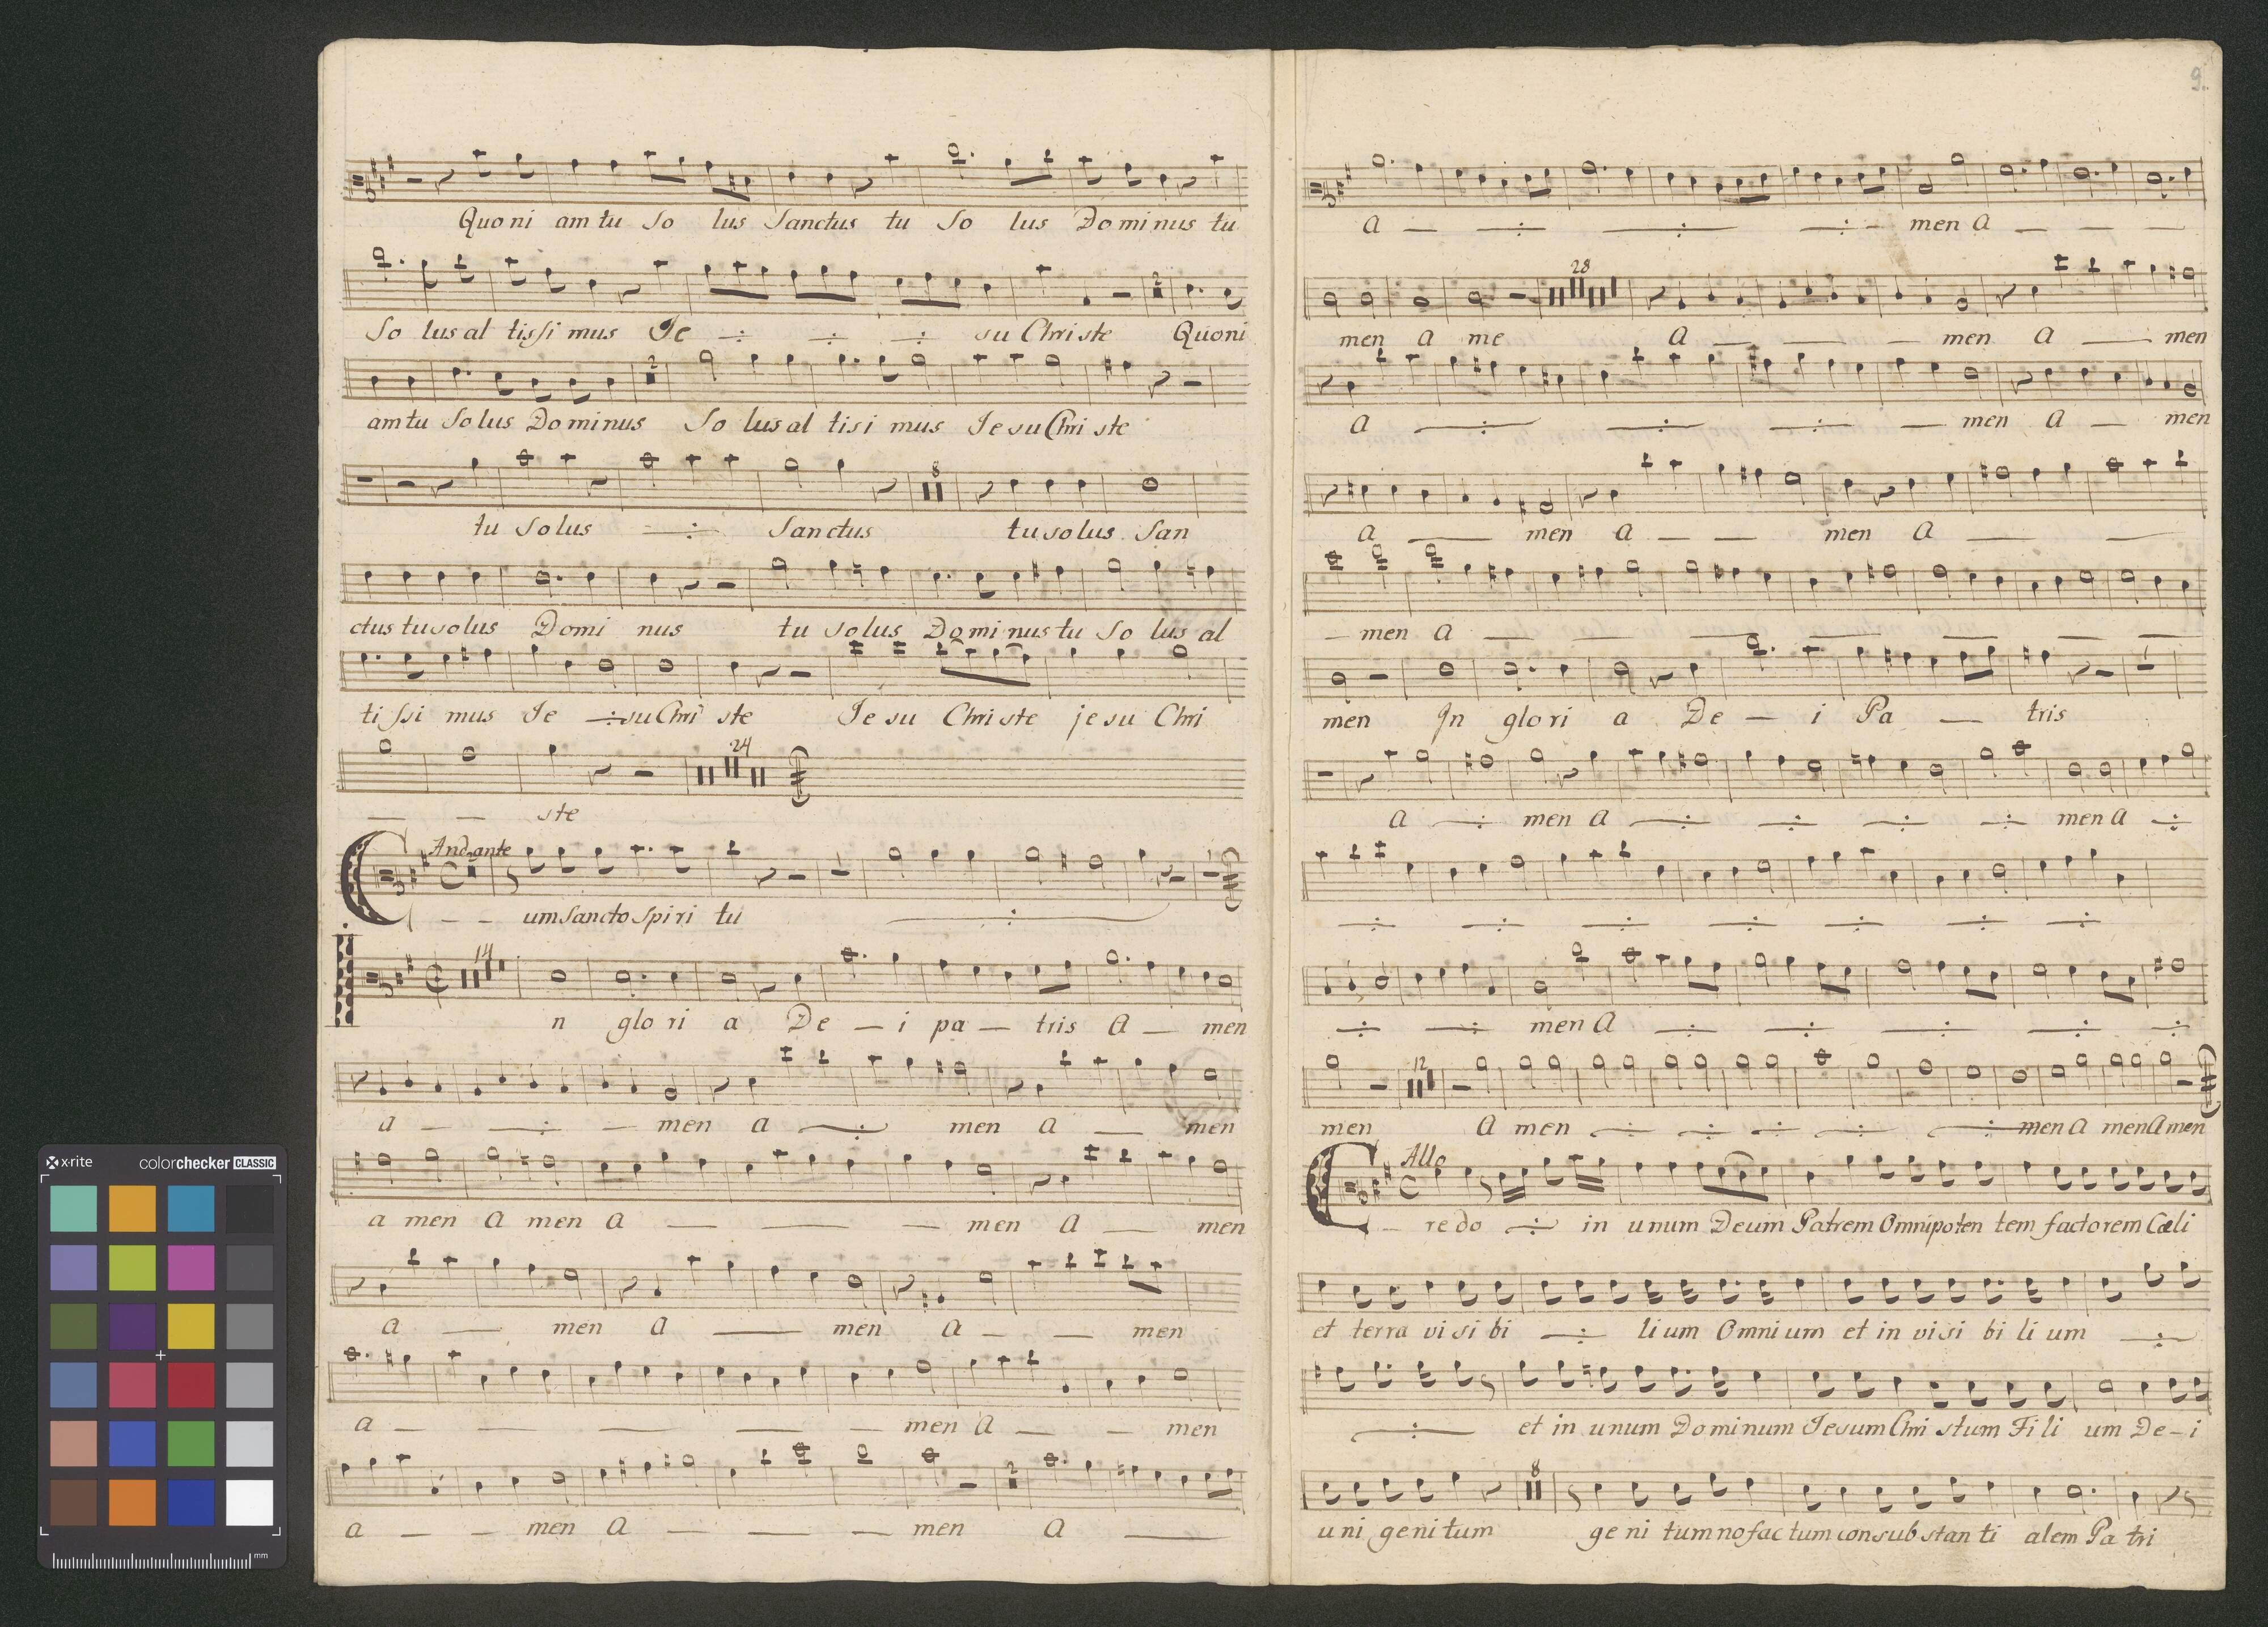 Quo ni am tu So lus Sanctus tu So lus Do mi nus tu
2
So lus al tissi mus Je su Chri ste Quoni
2
am tu So lus Do mi nus So lus al tisi mus Je su Chri ste
8
tu so lus Sanctus tu so lus San
ctus tu so lus Domi nus tu so lus Do mi nus tu So lus al
ti ssi mus Je su Chri ste Je su Chri ste je su Chri
24
ste
Andante
C um Sancto Spi ri tu
14
I n glo ri a De i pa tris A men
a men a men a men
a men A men A men A men
A men A men A men
a men A men
2
a men A men A
9.
A men A
28
men a me A men A men
A men A men
A men A men A
men A
men In glo ri a De i Pa tris
A men A men A
men A
12
men A men men A men A men
Allo
C re do in unum Deum Patrem Omnipoten tem factorem Cæli
et terra vi si bi li um Omni um et in vi si bi li um
et in unum Dominum Jesum Chri stum Fi li um De - i
8
u ni ge ni tum ge ni tum no fac tum con sub stan ti alem Pa tri
x-rite colorchecker CLASSIC
mm